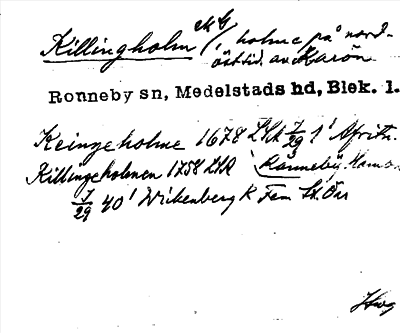 Killingholm holme på nord-
östsid. av Karön
Ronneby sn, Medelstads hd, Blek. l.
Keingeholme 1678 LSA 7/29 1'
Killingeholmen 1758 LSA Ronneby Hamn
7/29 40' Wikenberg K Fem St. Öar